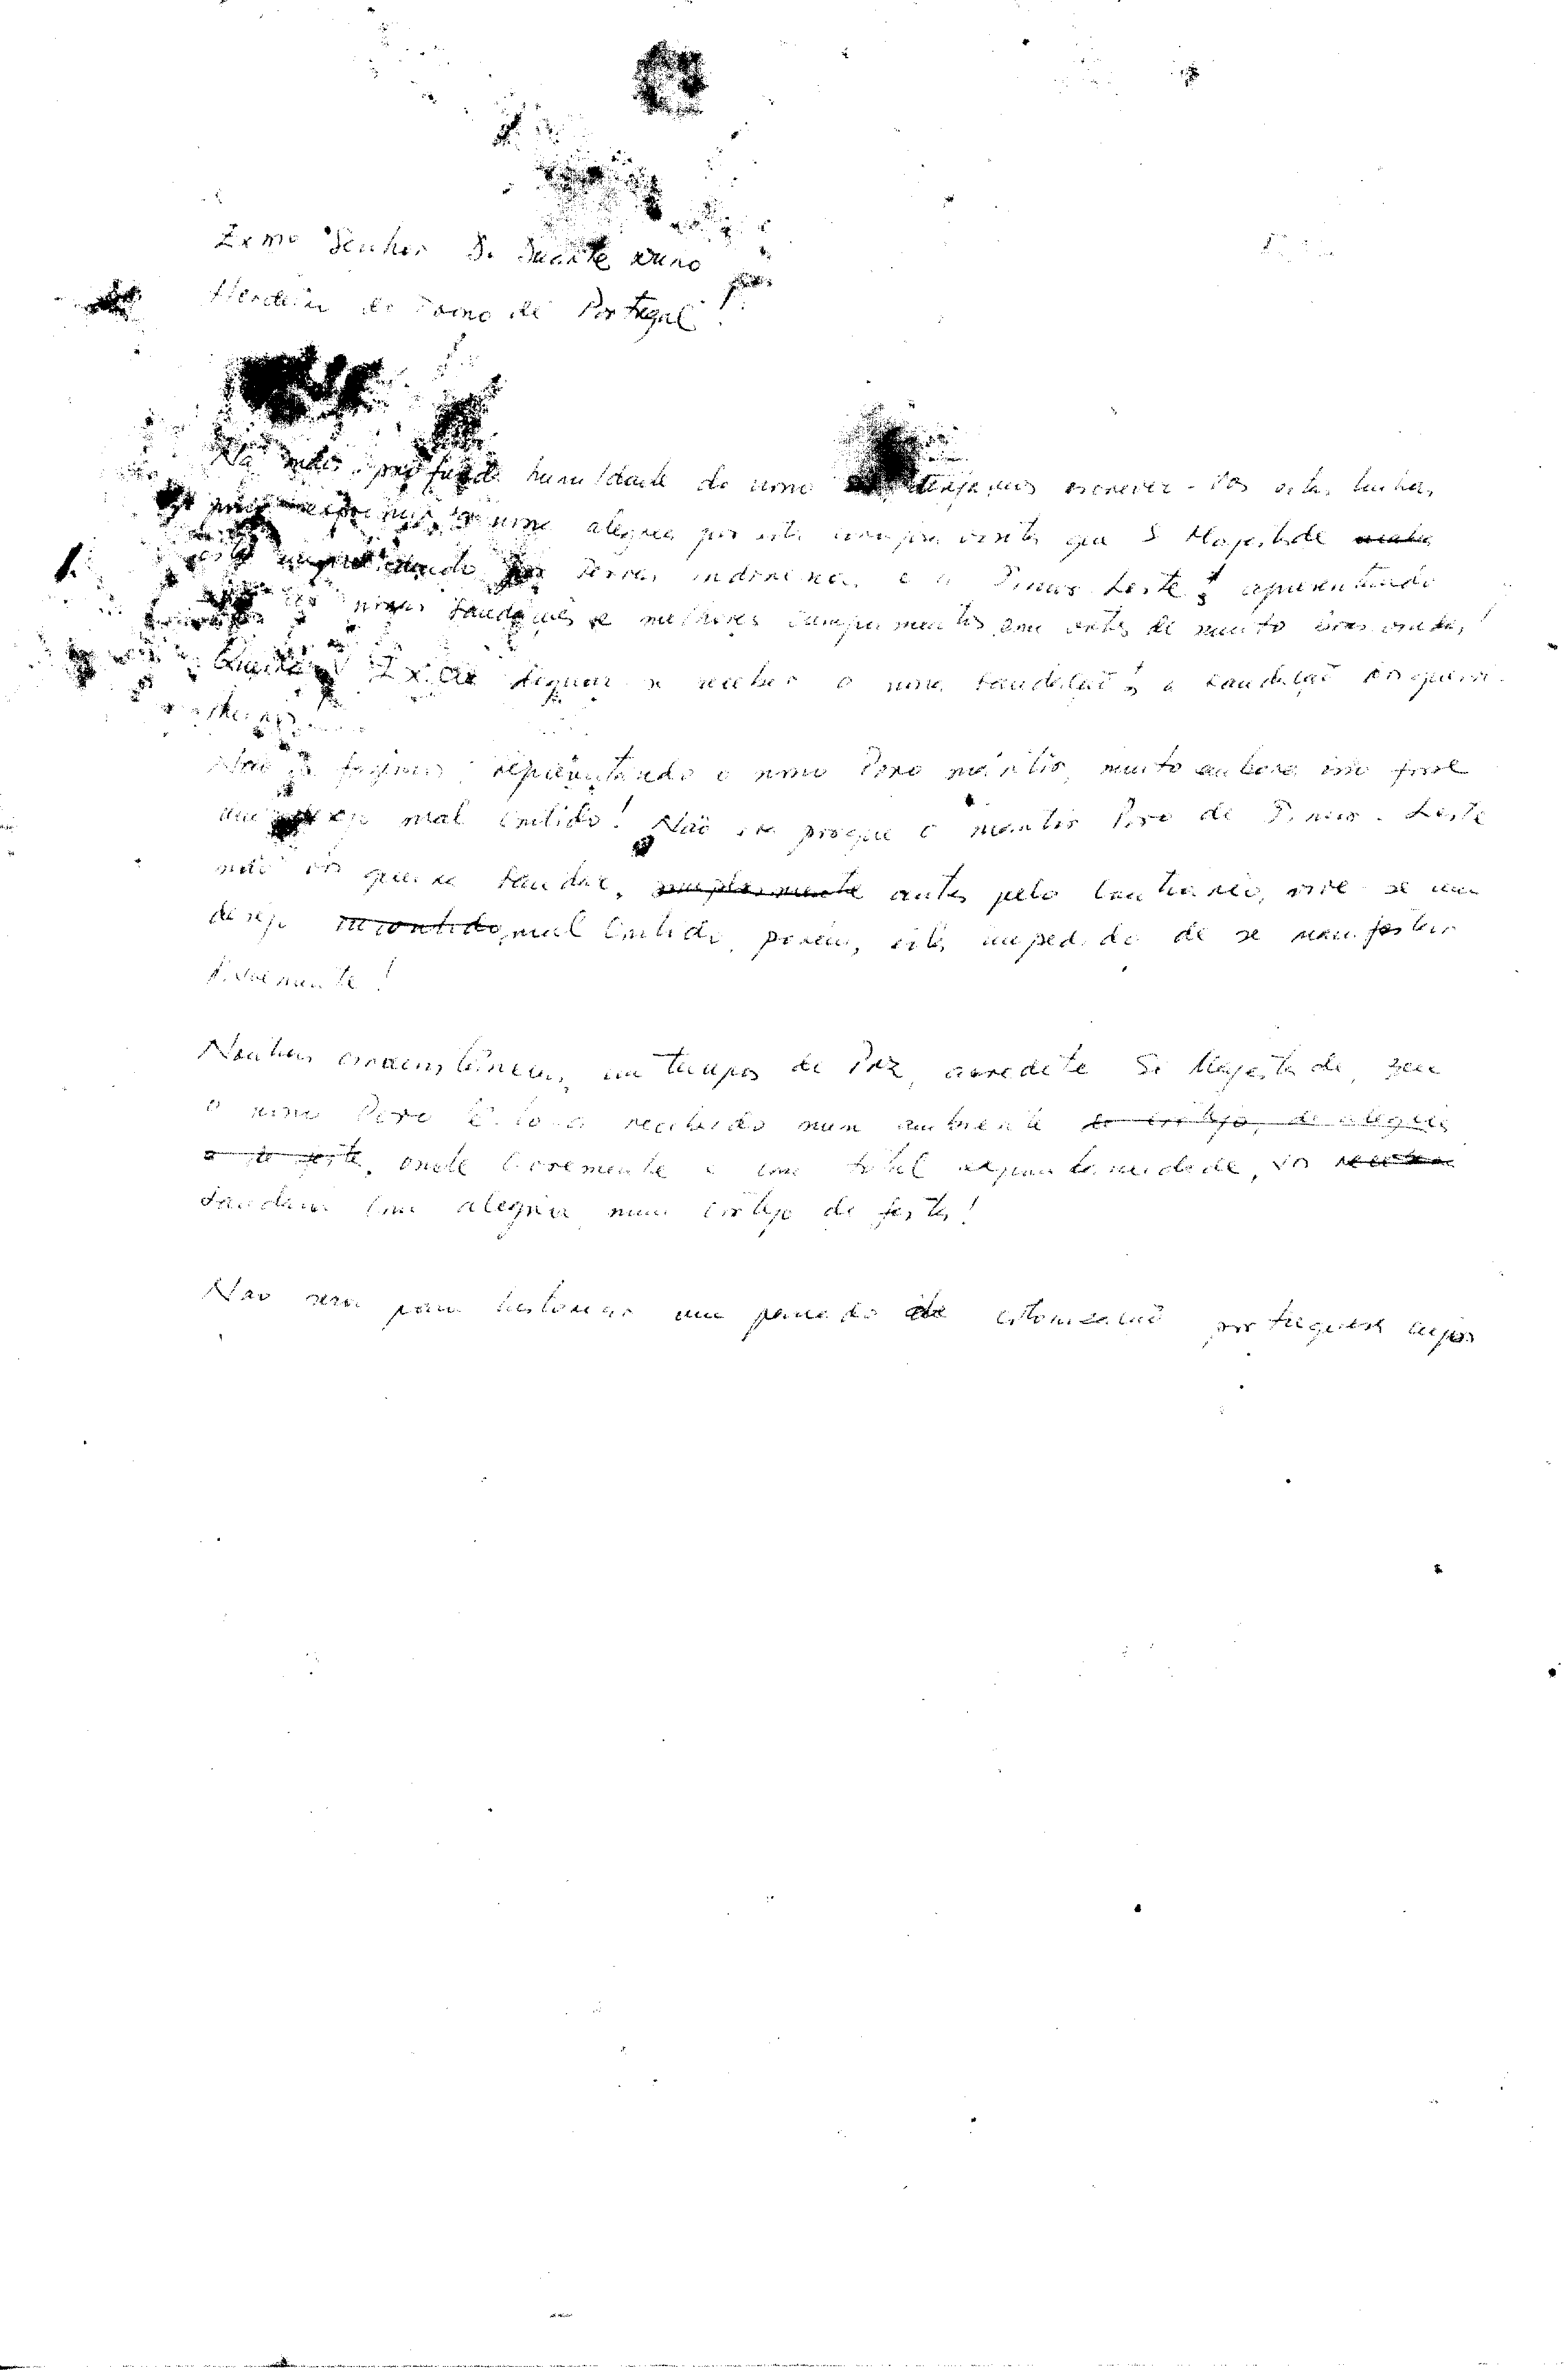 Exmo Senhor D. Duarte Nuno
Herdeiro do Trono de Portugal!
Na mais profunda humildade do nosso desejamos escrever-vos estas linhas,
para exprimir a nossa alegria por esta visita que S. Majestade
está por Terras indonésias e a Timor-Leste, apresentando
nossas saudações e melhores cumprimentos com votos de muito boas vindas!
Queira V. Excia dignar-se receber a nossa saudação, a saudação dos guerri-
lheiros
Não o fazemos representando o nosso Povo maubere, muito embora isso fosse
um desejo mal contido! Não é porque o Povo de Timor-Leste
não vos queira saudar, simplesmente antes pelo contrário, vive-se um
desejo incontido, mal contido, porém, está impedido de se manifestar
livremente!
Noutras circunstâncias, em tempos de Paz, acredite S. Majestade, que
o nosso Povo recebido num ambiente de cortejo, de alegria
e de festa, onde livremente e com total espontaneidade, vos
saudaria com alegria num cortejo de festa!
Não será para historiar um passado de colonização portuguesa cujos